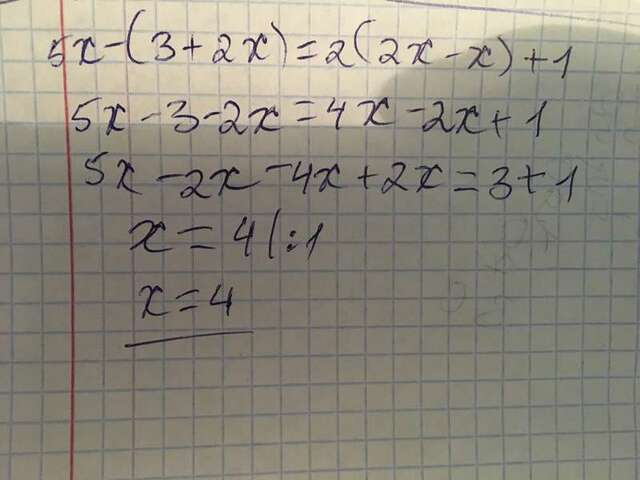 5x-(3+2x)=2(2x-x)+1
5x-3-2x=4x-2x+1
5x-2x-4x+2x=3+1
x=4(:1
x=4